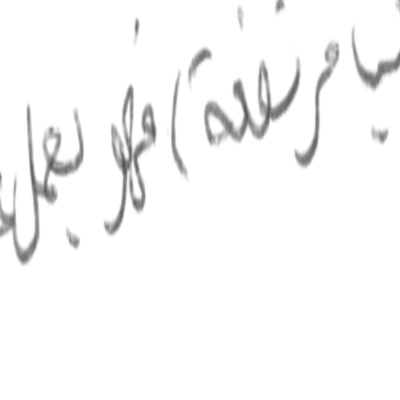 مرتفعة ) فهو يعمل